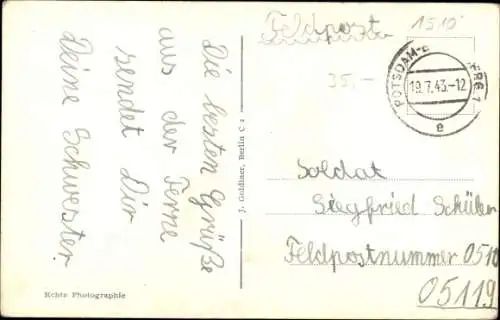 Die besten Grüße
aus der Ferne
sendet Dir
Deine Schwester.
Echte Photographie
J. Goldiner, Berlin C 2
Feldpost
1510
35,-
19.7.43.-12
e
Soldat
Siegfried
Feldpostnummer 0510
05119